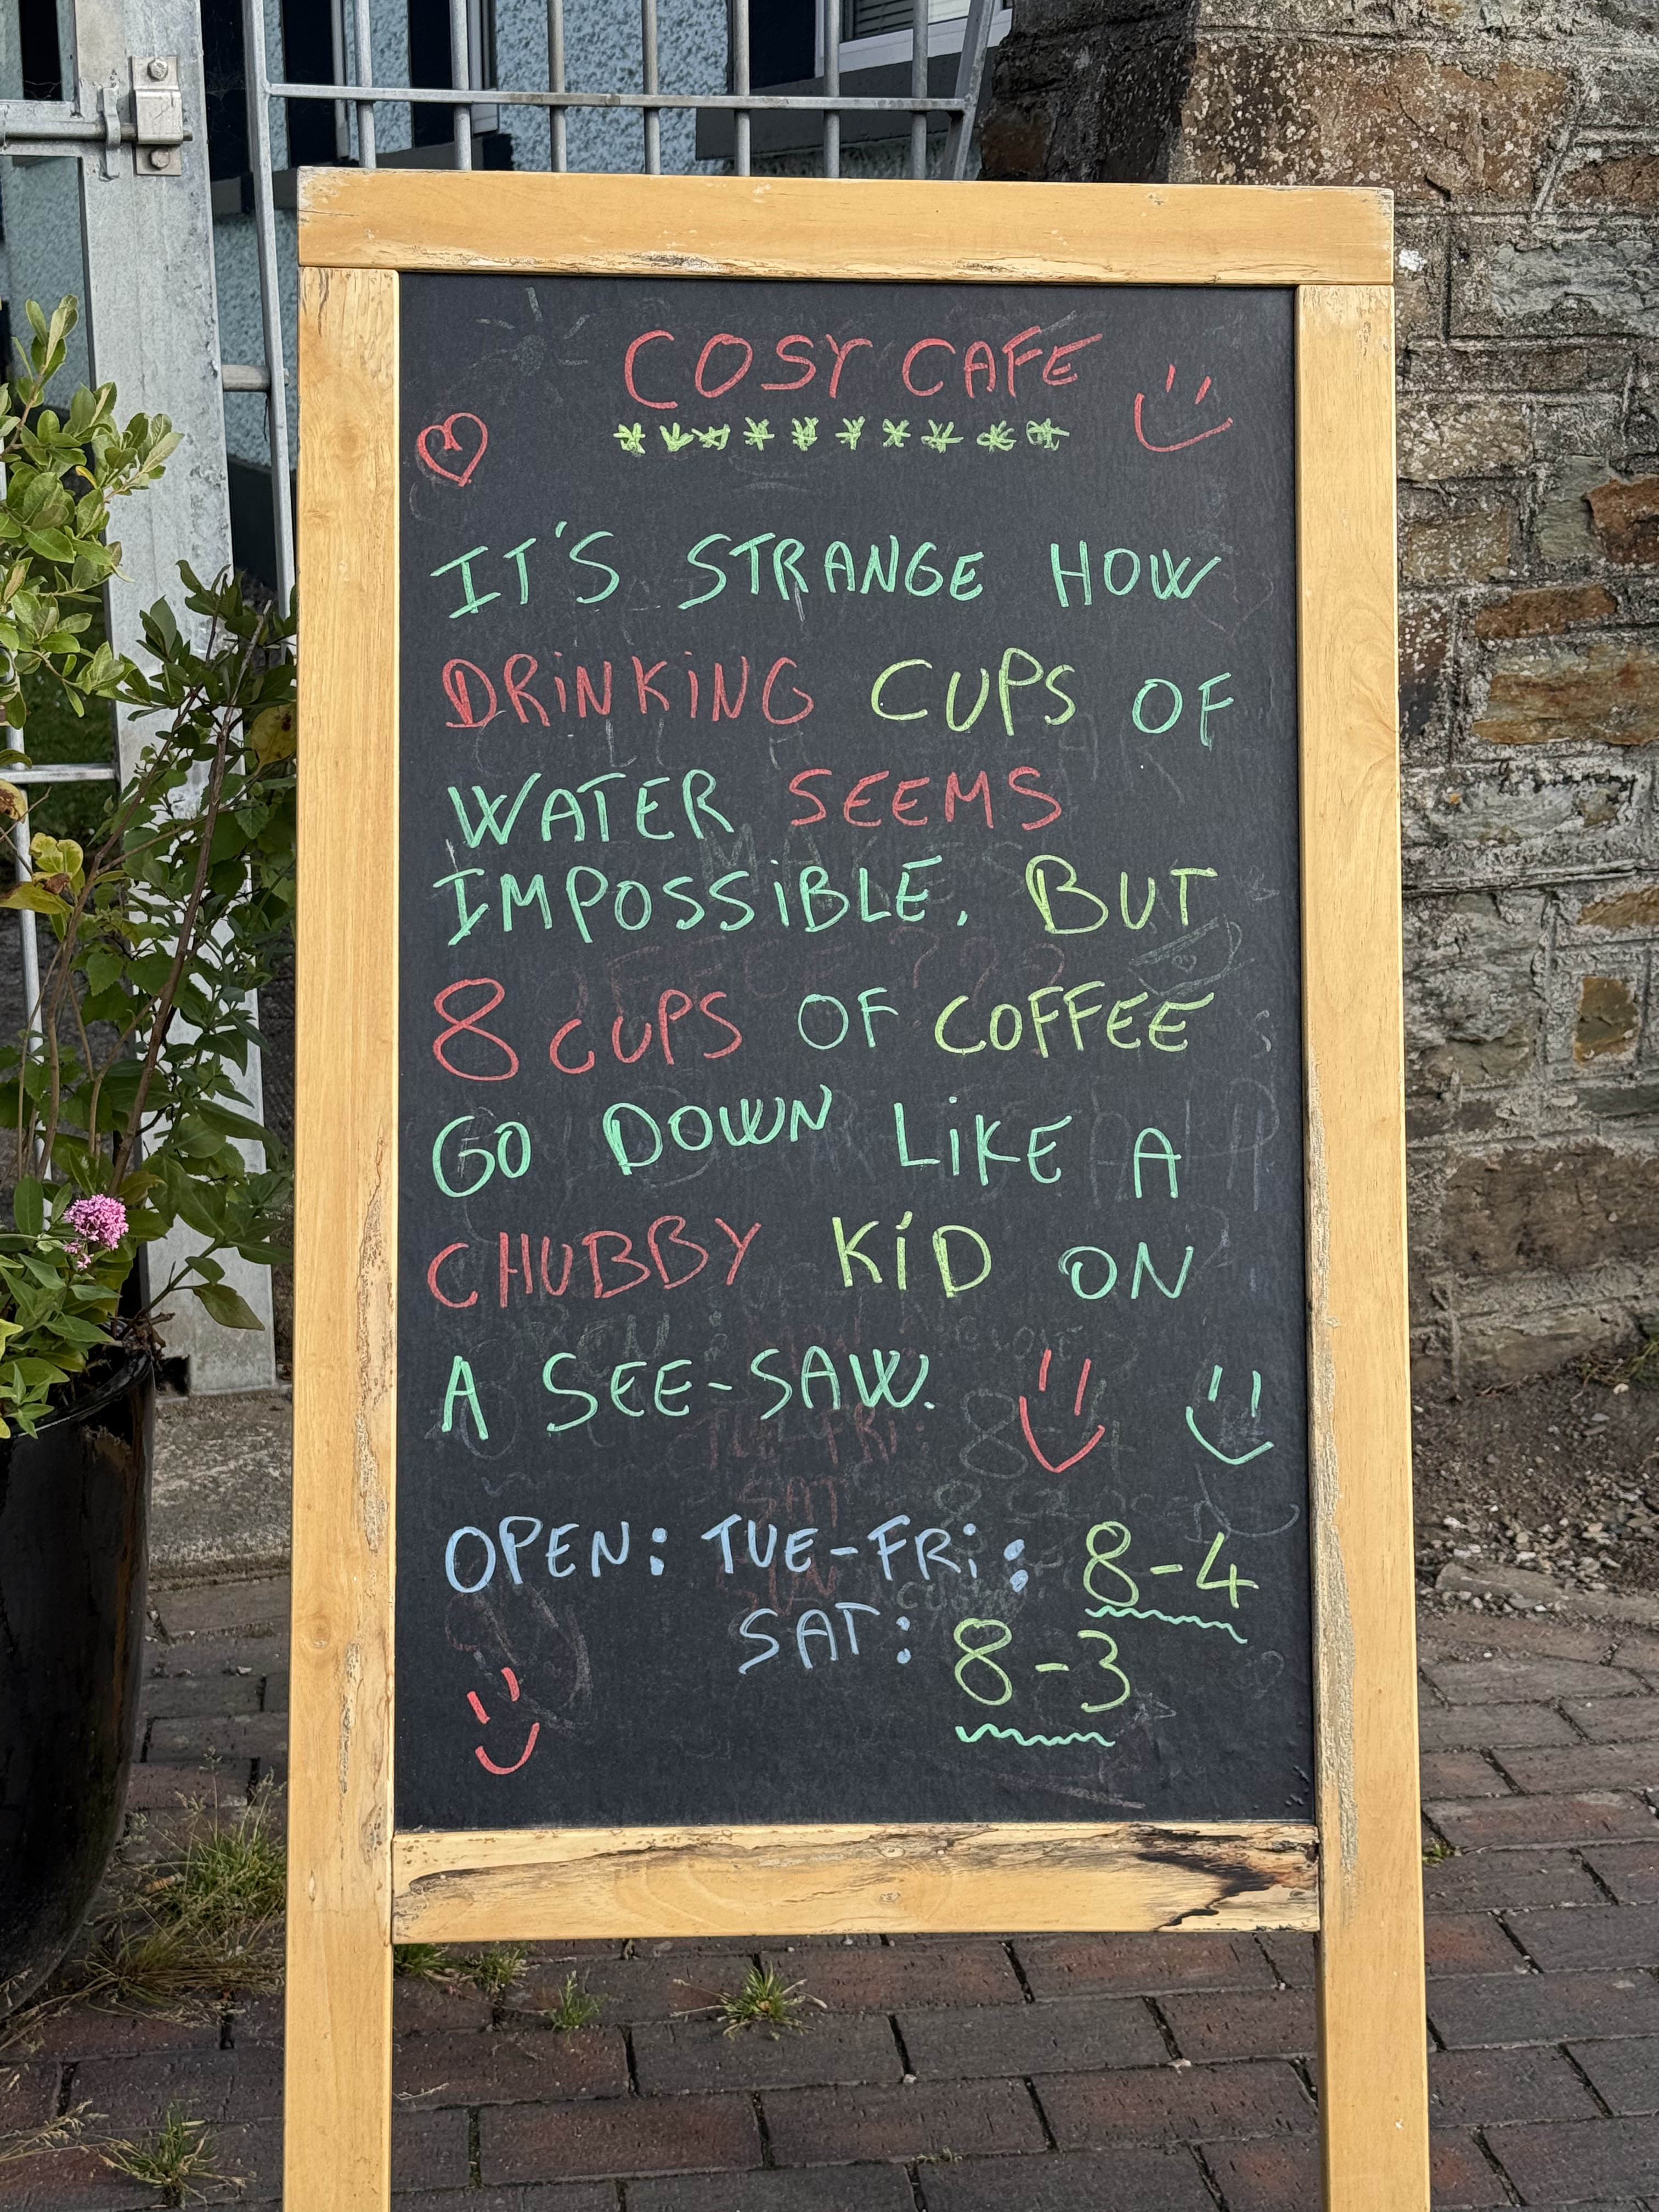 COSY CAFE
**********
IT'S STRANGE HOW
DRiNKiNG CUPS OF
WATER SEEMS
IMPOSSiBLE. BUT
8 CUPS OF COFFEE
GO DOWN LiKE A
CHUBBY KiD ON
A SEE-SAW.
OPEN: TUE-FRi: 8-4
SAT: 8-3